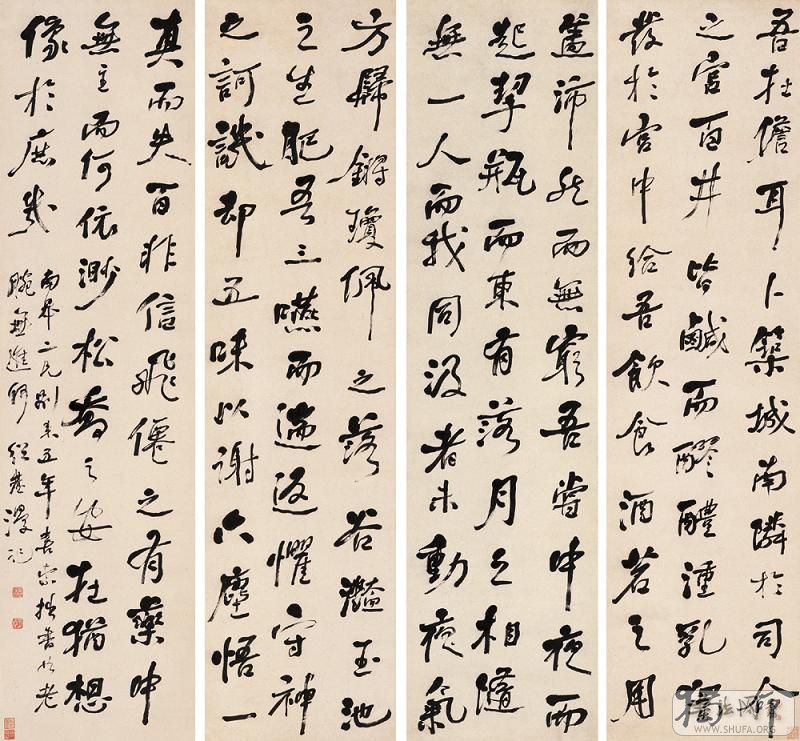 吾在儋耳卜築城南隣於司命
之宮百井皆鹹而醪醴湩乳獨
發於宮中給吾飲食酒茗之用
蓋沛然而無窮吾嘗中夜而
起挈瓶而東有落月之相隨
無一人而我同汲者未動夜氣
方歸鏘瓊佩之落谷灩玉池
之生肥吾三嚥而遄返懼守神
之訶譏却五味以謝六塵悟一
真而失百非信飛僊之有藥中
無主而何依渺松喬之安在猶想
像於庶幾
二兄別來五年喜索拙書以老
腕無進 紹基
WWW.SHUFA.ORG